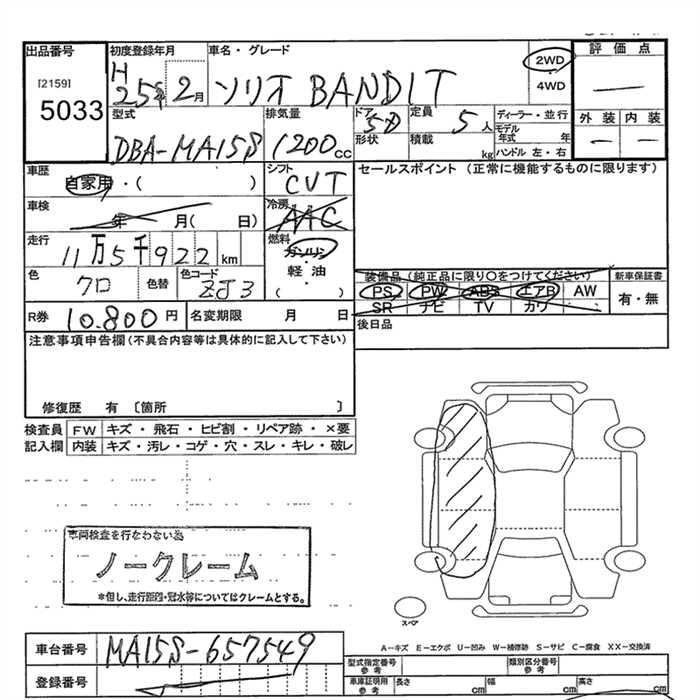 出品番号 初度登録年月 車名・グレード 2WD 評価点
[2159] H 25年 2月 ソリオ BANDIT 4WD
5033 型式 排気量 ドア 5D 定員 5人 ディーラー・並行 外装 内装
DBA-MA15S 1200cc 形状 積載 kg モデル年式 年
ハンドル 左・右
車歴 シフト セールスポイント (正常に機能するものに限ります)
自家用・( ) CVT
車検 年 月( 日) 冷房 AAC
走行 11万5千922km 燃料 ガソリン
・
色 クロ 色替 色コード ZJ3 軽油 装備品 (純正品に限り〇をつけてください) 新車保証書
( ) PS PW ABS エアB AW 有・無
SR ナビ TV カワ
R券 10.800円 名変期限 月 日 後日品
注意事項申告欄(不具合内容等は具体的に記入して下さい)
修復歴 有 〔箇所 〕
検査員 FW キズ・飛石・ヒビ割・リペア跡・×要
記入欄 内装 キズ・汚レ・コゲ・穴・スレ・キレ・破レ
車両検査を行なわない為
ノークレーム
*但し、走行距離・冠水等についてはクレームとする。
スペア
A-キズ E-エクボ U-凹み W-補修跡 S-サビ C-腐食 XX-交換済
車台番号 MA15S-657549 型式指定番号 参考 類別区分番号 参考
登録番号 車庫証明用 参考 長さ cm 幅 cm 高さ cm